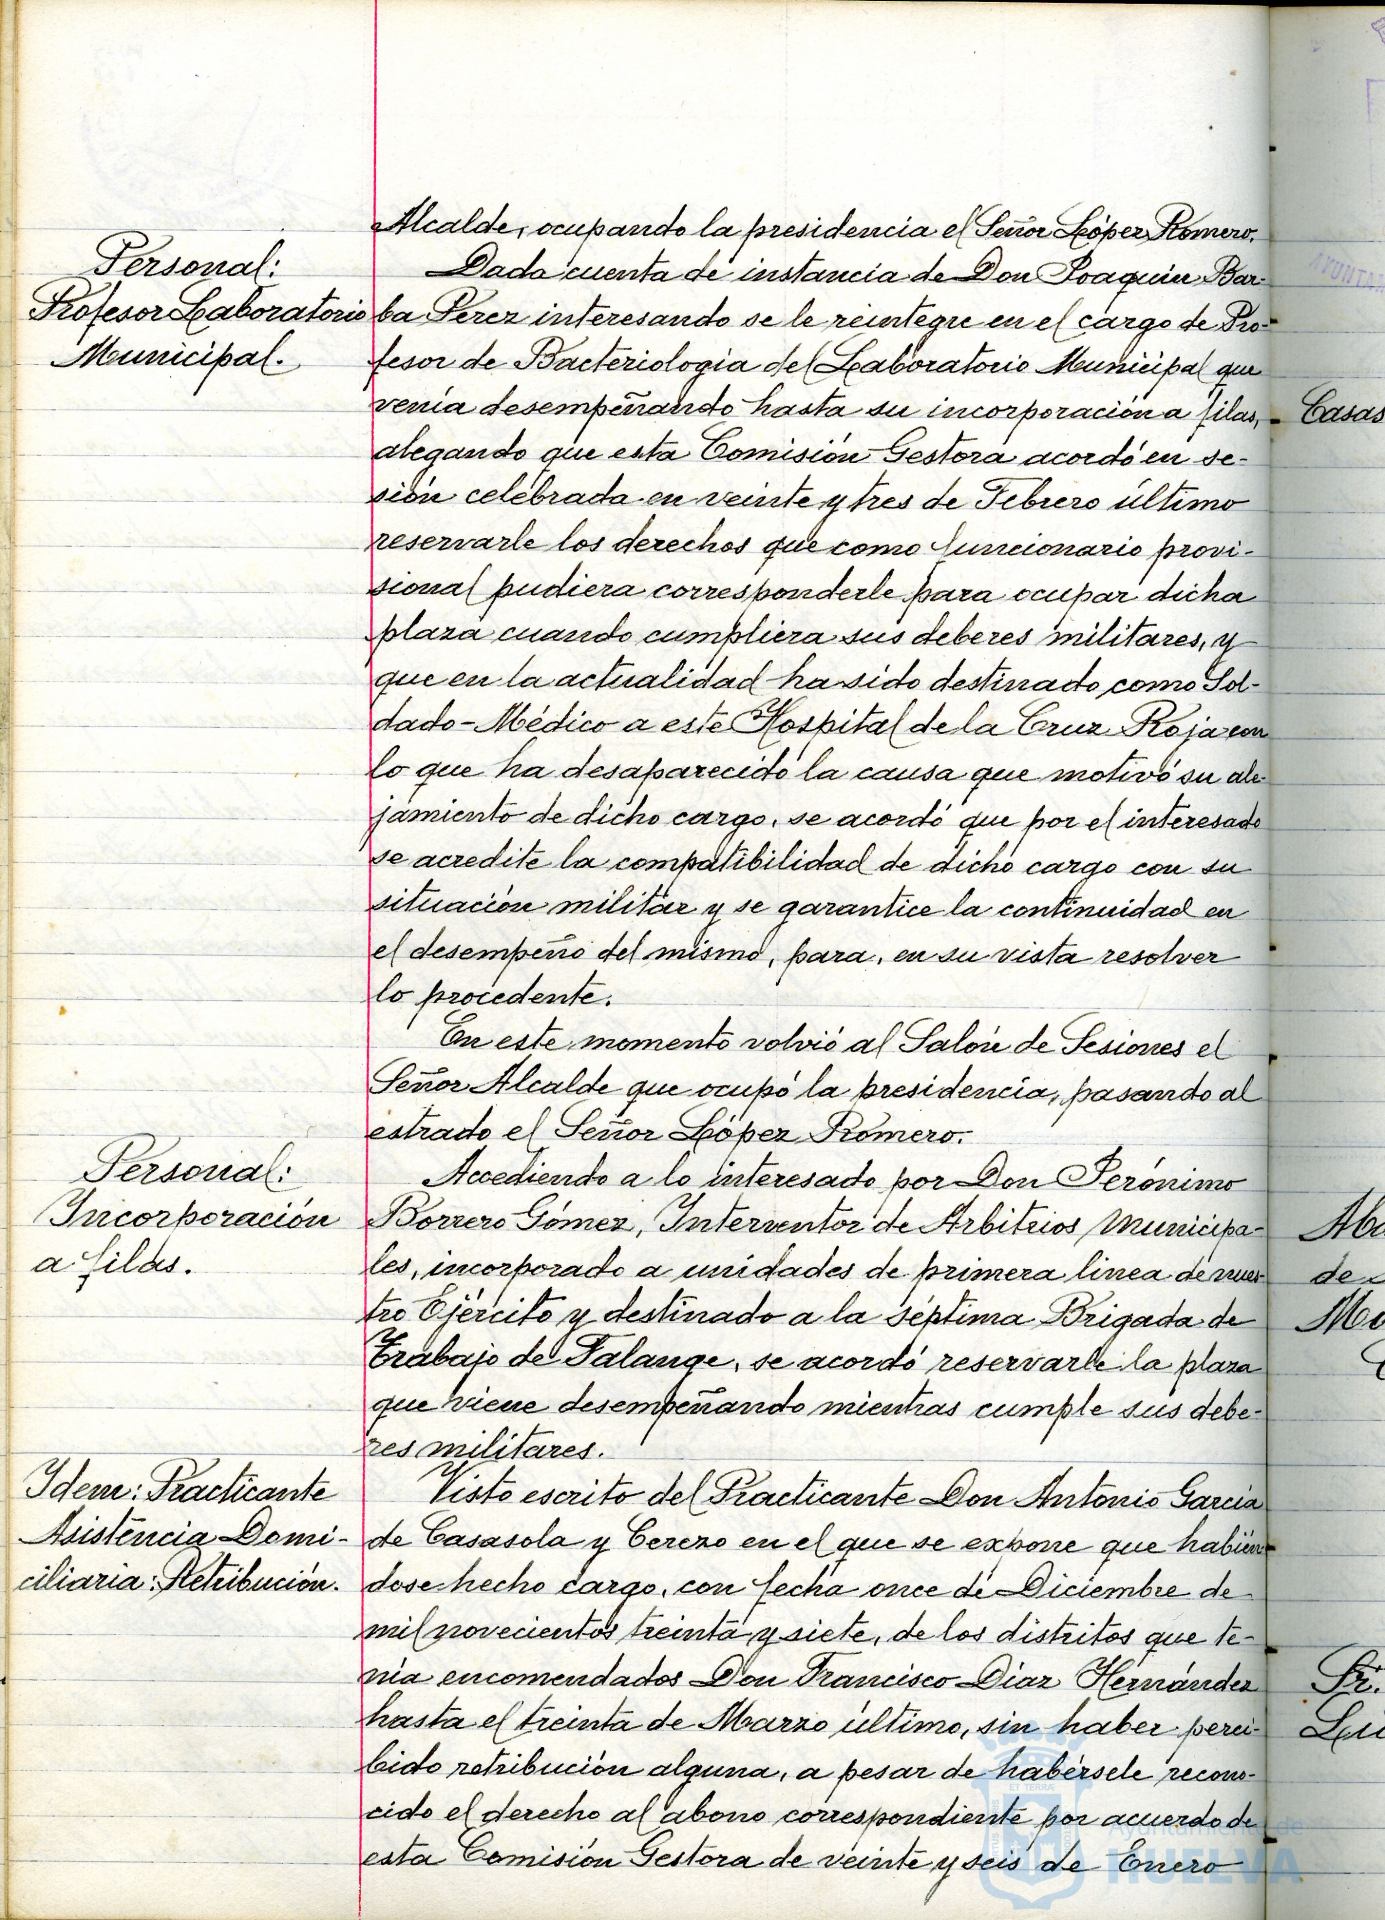 Alcalde, ocupando la presidencia el Señor López Romero.
Personal:
Profesor Laboratorio
Municipal.
Dada cuenta de instancia de Don Joaquin Bar-
ba Perez interesando se le reintegre en el cargo de Pro-
fesor de Bacteriologia del Laboratorio Municipal que
venia desempeñando hasta su incorporación a filas,
alegando que esta Comisión Gestora acordó en se-
sión celebrada en veinte y tres de Febrero último
reservarle los derechos que como funcionario provi-
sional pudiera corresponderle para ocupar dicha
plaza cuando cumpliera sus deberes militares, y
que en la actualidad ha sido destinado como Sol-
dado-Médico a este Hospital de la Cruz Roja con
lo que ha desaparecido la causa que motivó su ale-
jamiento de dicho cargo, se acordó que por el interesado
se acredite la compatibilidad de dicho cargo con su
situación militar y se garantice la continuidad en
el desempeño del mismo, para, en su vista resolver
lo procedente.
En este momento volvió al Salón de Sesiones el
Señor Alcalde que ocupó la presidencia, pasando al
estrado el Señor López Romero.
Personal:
Incorporación
a filas.
Accediendo a lo interesado por Don Jerónimo
Borrero Gómez, Interventor de Arbitrios Municipa-
les, incorporado a unidades de primera linea de nues-
tro Ejército y destinado a la séptima Brigada de
Trabajo de Falange, se acordó reservarle la plaza
que viene desempeñando mientras cumple sus debe-
res militares.
Idem: Practicante
Asistencia Domi-
ciliaria: Retribución.
Visto escrito del Practicante Don Antonio Garcia
de Casasola y Cerezo en el que se expone que habién-
dose hecho cargo, con fecha once de Diciembre de
mil novecientos treinta y siete, de los distritos que te-
nia encomendados Don Francisco Diaz Hernández
hasta el treinta de Marzo último, sin haber perci-
bido retribución alguna, a pesar de habérsele recono-
cido el derecho al abono correspondiente por acuerdo de
esta Comisión Gestora de veinte y seis de Enero
Casas
de
Ayuntamiento de
HUELVA